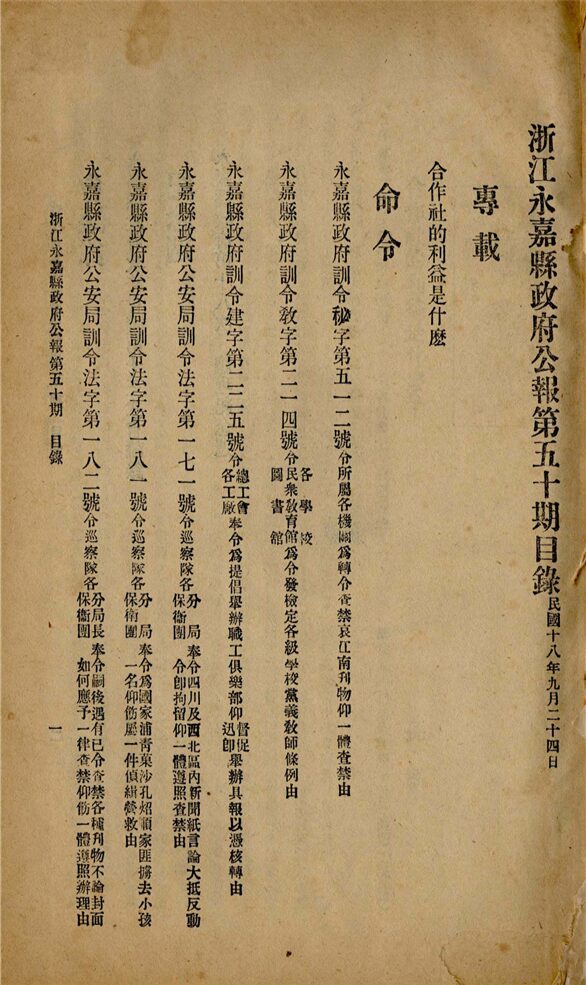 浙江永嘉縣政府公報第五十期目錄 民國十八年九月二十四日
專載
合作社的利益是什麽
命令
永嘉縣政府訓令秘字第五一二號 令所屬各機關爲轉令查禁哀江南刊物仰一體查禁由
永嘉縣政府訓令敎字第二一四號 令各學校民衆敎育館圖書館爲令發檢定各級學校黨義敎師條例由
永嘉縣政府訓令建字第二二五號 令總工會各工廠奉令爲提倡舉辦職工俱樂部仰督促迅卽舉辦具報以憑核轉由
永嘉縣政府公安局訓令法字第一七一號 令巡察隊各分局保衞團 奉令四川及西北區內新聞紙言論大抵反動令卽拘留仰一體遵照查禁由
永嘉縣政府公安局訓令法字第一八一號 令巡察隊各分局保衞團 奉令爲國家浦靑菓沙孔炤顯家匪擄去小孩一名仰飭屬一件偵緝營救由
永嘉縣政府公安局訓令法字第一八二號 令巡察隊各分局長保衞團 奉令嗣後遇有已令查禁各種刊物不論封面如何應予一律查禁仰飭一體遵照辦理由
浙江永嘉縣政府公報第五十期 目錄
一